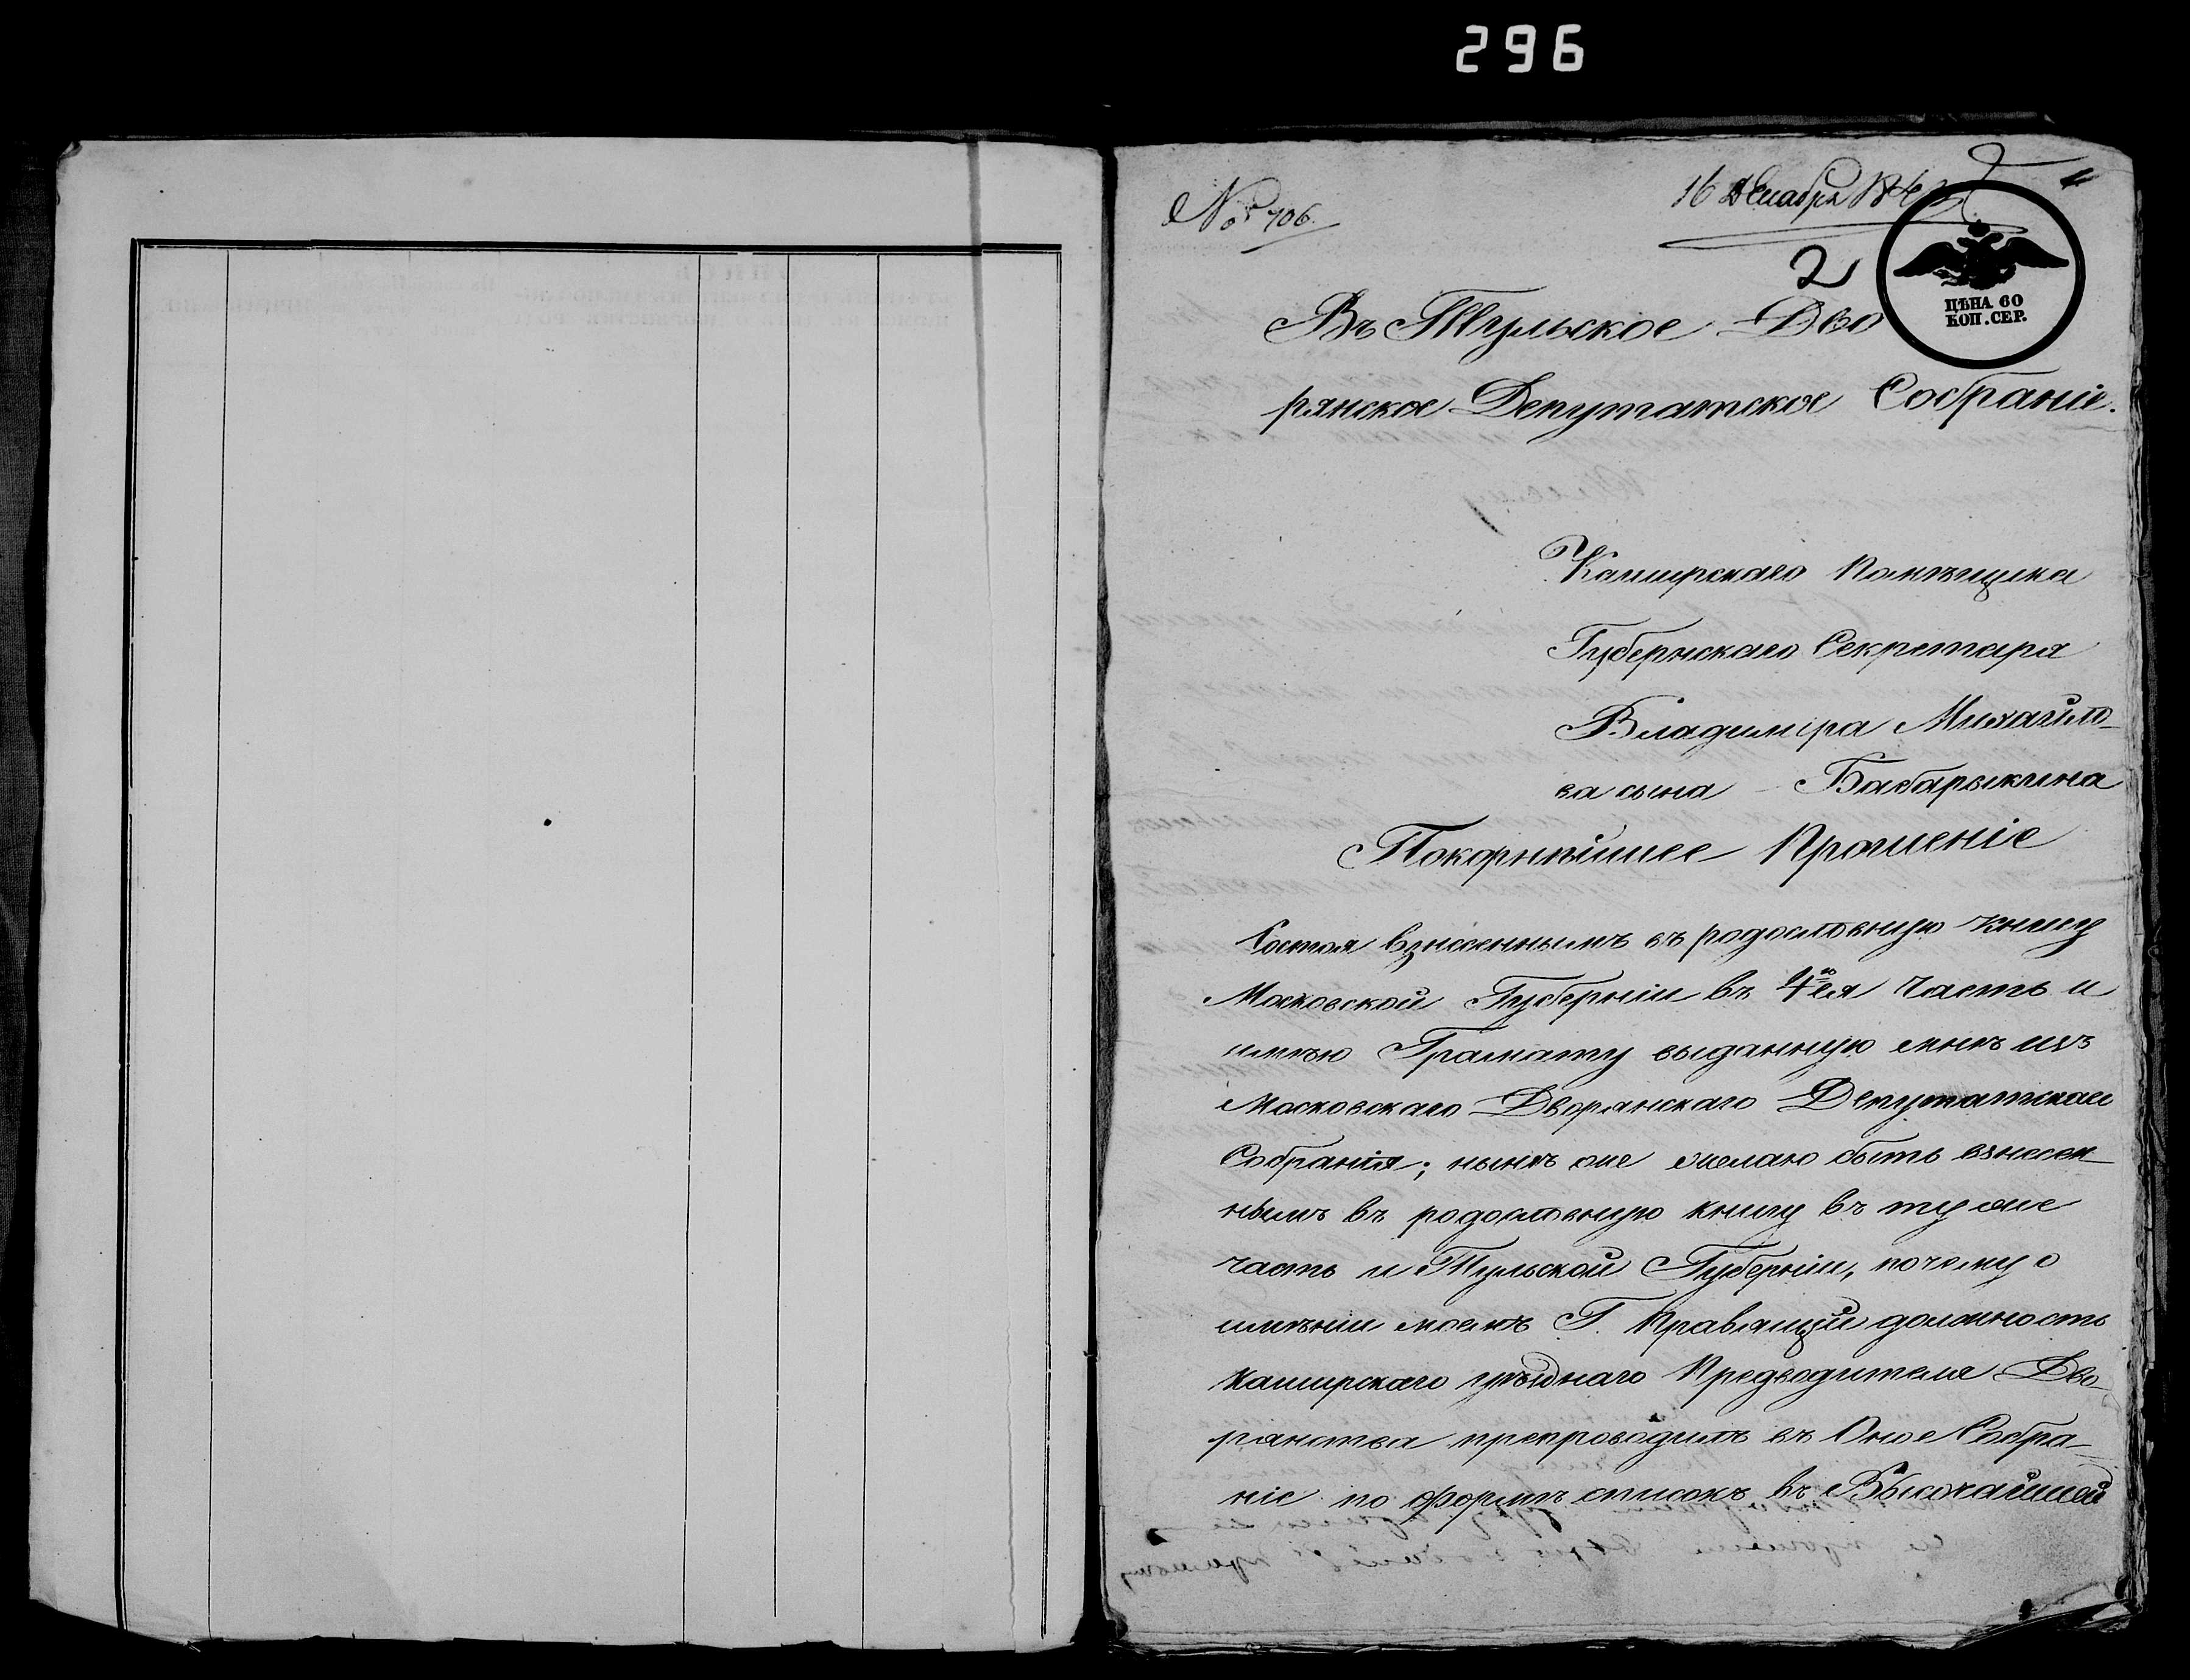 296
№ 706.
16 Декабря
2
ЦѢНА 60
КОП. СЕР.
Въ Тульское Дво
рянское Депутатское Собраніе.
Каширскаго Помѣщика
Губернскаго Секретаря
Владиміра Михайло-
ва сына Бабарыкина
Покорнѣйшее Прошеніе
Состоя внесеннымъ въ родословную книгу
Московской Губерніи въ 4ю часть и
имѣю Грамату выданную мнѣ изъ
Московскаго Дворянскаго Депутатскаго
Собранія; нынѣ же желаю быть внесен-
нымъ въ родословную книгу въ ту же
часть и Тульской Губерніи, почему о
имѣніи моемъ Г. Правящій должность
Каширскаго уѣзднаго Предводителя Дво-
рянства препроводитъ въ Оное Собра-
ніе по формѣ списокъ въ Высочайшей